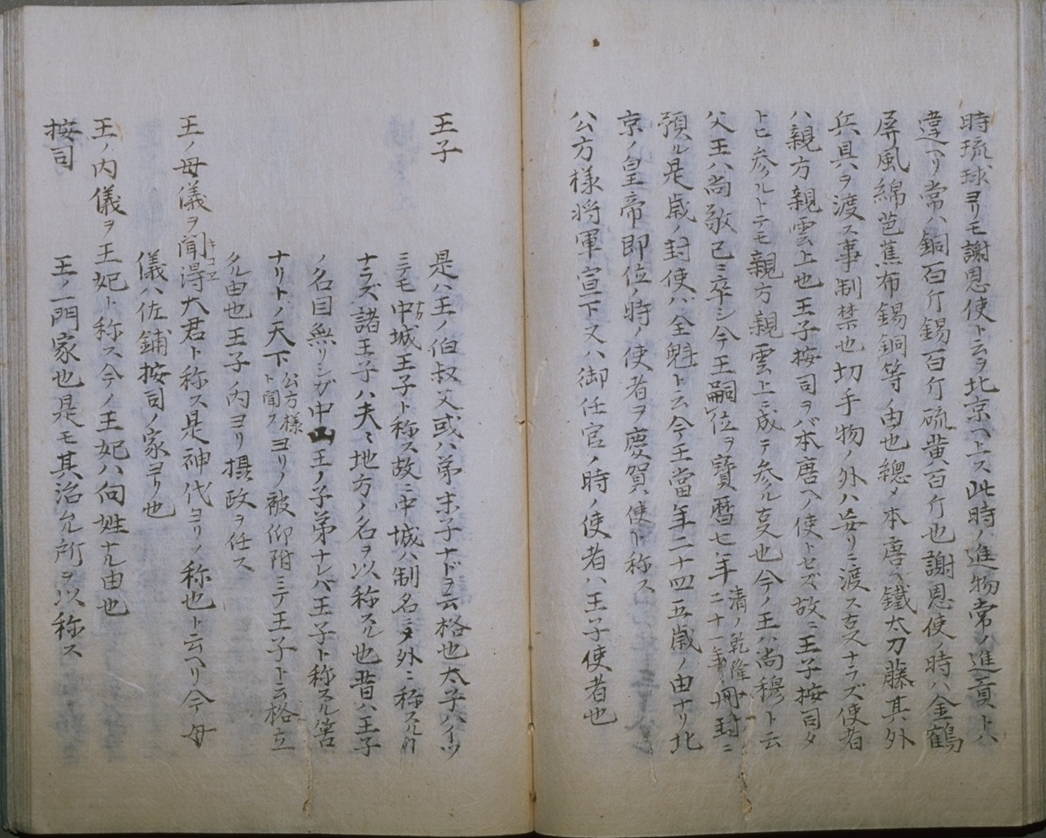 時琉球ヨリモ謝恩使ト云ヲ北京ヘ上ス此時ノ進物常ノ進貢トハ
違ヘリ常ハ銅百斤錫百斤硫黄百斤也謝恩使ノ時ハ金鶴
屏風綿芭蕉布錫銅等ノ由也總メ本唐ヘ鐵太刀藤其外
兵具ヲ渡ス事制禁也切手物ノ外ハ妄リニ渡ス叓ナラズ使者
ハ親方親雲上也王子按司ヲバ本唐ヘノ使トセズ故ニ王子按司タ
トヒ参ルトテモ親方親雲上ニ成テ参ル叓也今ノ王ハ尚穆ト云
父王ハ尚敬已ニ卒シ今王嗣位ヲ寳暦七年清ノ乾隆二十一年冊封ニ
預ル是歳ノ封使ハ全魁トス今王當年二十四五歳ノ由ナリ北
京ノ皇帝即位ノ時ノ使者ヲ慶賀使ト称ス
公方様将軍宣下又ハ御任官ノ時ノ使者ハ王子使者也
王子
是ハ王ノ伯叔父或ハ弟末子ナドヲ云格也太子ハイツ
ニテモ中城王子ト称ス故ニ中城ハ制名ニ〆外ニ称スル
ナラズ諸王子ハ夫々地方ノ名ヲ以称スル也昔ハ王子
ノ名目無リシガ中山王ノ子弟ナレバ王子ト称スル筈
ナリトノ天下公方様ト聞スヨリノ被仰附ニテ王子ト云格立
タル由也王子ノ内ヨリ摂政ヲ任ス
王ノ母儀ヲ聞得大君ト称ス是神代ヨリノ称也ト云ヘリ今ノ母
儀ハ佐鋪按司ノ家ヨリ也
王ノ内儀ヲ王妃ト称ス今ノ王妃ハ向姓ナル由也
按司
王ノ一門家也是モ其治允所ヲ以称ス